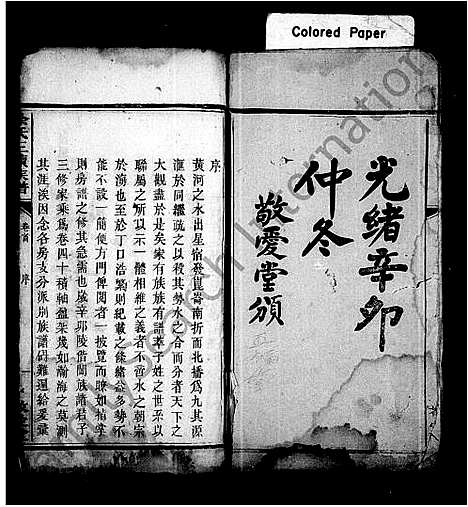 Colored Paper
光緒辛卯
仲冬
敬愛堂頒
序
黃河之水出星宿發崑崙南折而北播為九其源
滙於同繼疏之以殺其勢水之合而分者天下之
大觀盡於是矣家有族族有譜萃子姓之世系以
聯屬之所以示一體相維之義者不啻水之朝宗
於海也至於丁口浩繁則紀載之條緒益多勢不
能不設一簡便方門俾閱者一披覽而瞭如指掌
則房譜之修其急需也歲辛卯陵偕闔族諸君子
三修家乘為卷四十積軸盈架幾如瀚海之莫測
其涯涘因念各房支分派別族譜碍難遍給爰彙
卷首
序